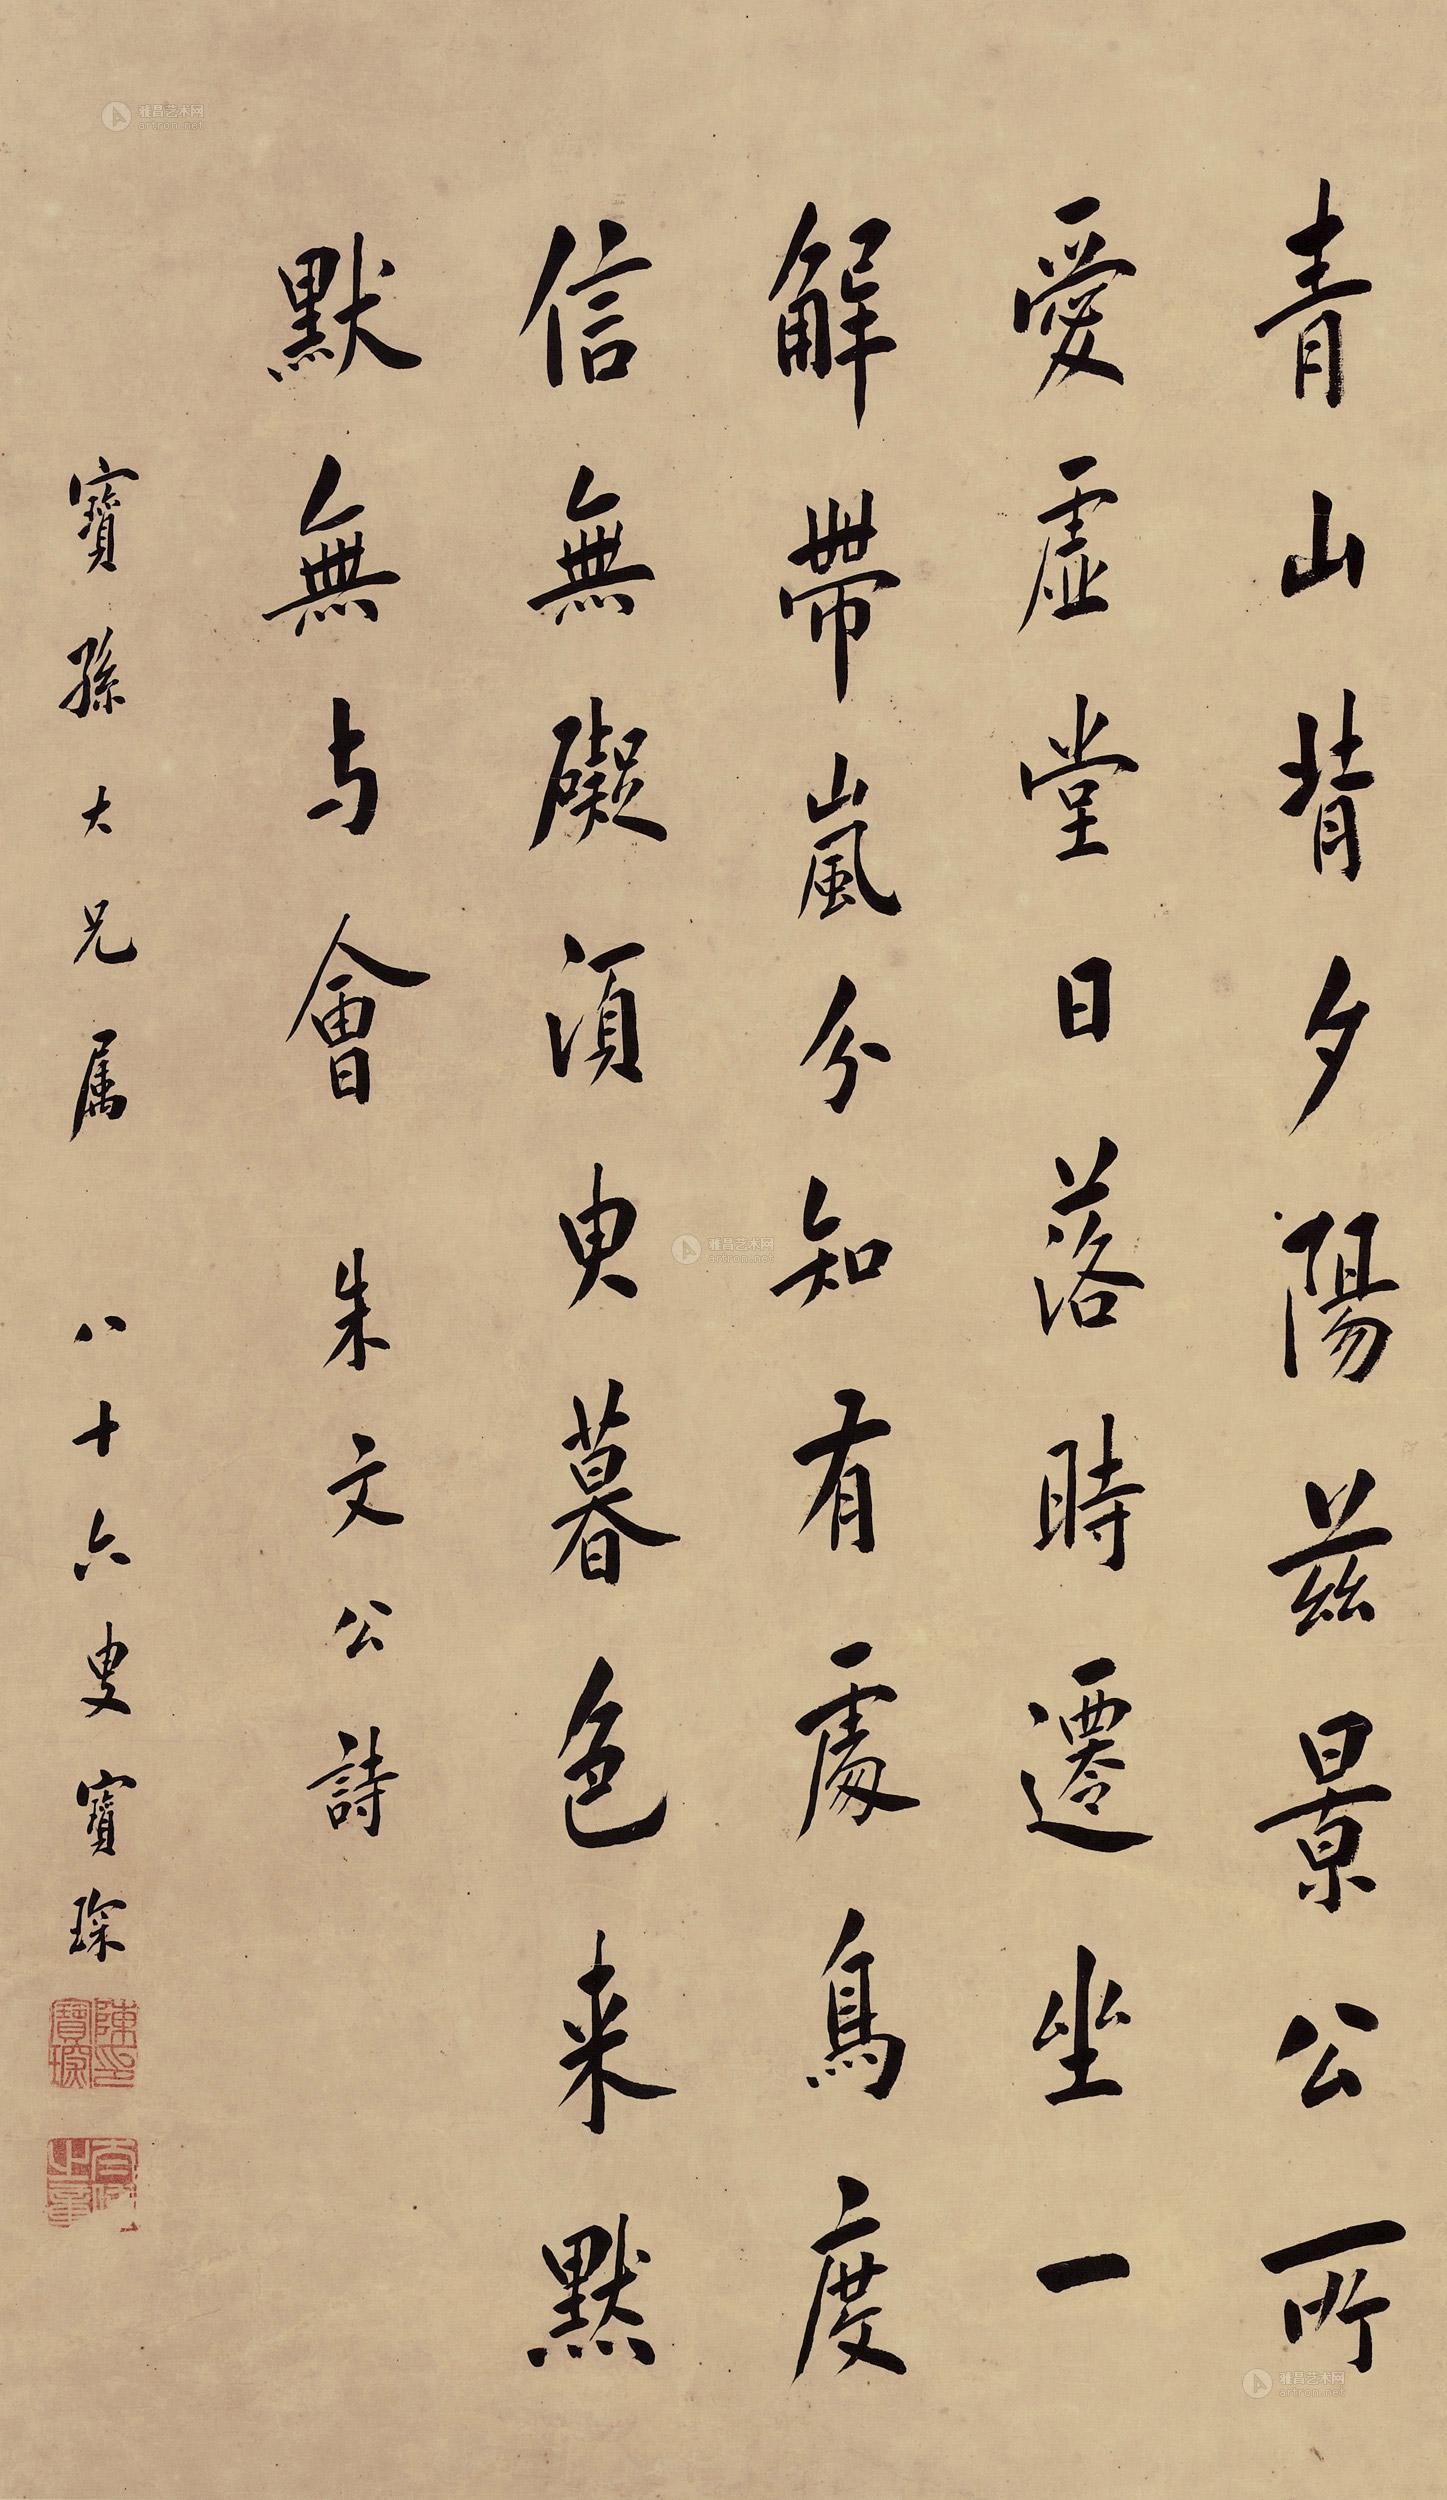 青山背夕陽茲景公所
愛虛堂日落時遷坐一
解帶嵐分知有處鳥度
信無礙須臾暮色来默
默無与會 朱文公詩
寶孫大兄属 八十六叟寶琛
陳印寶琛
雅昌艺术网
artron.net
雅昌艺术网
artron.net
雅昌艺术网
artron.net